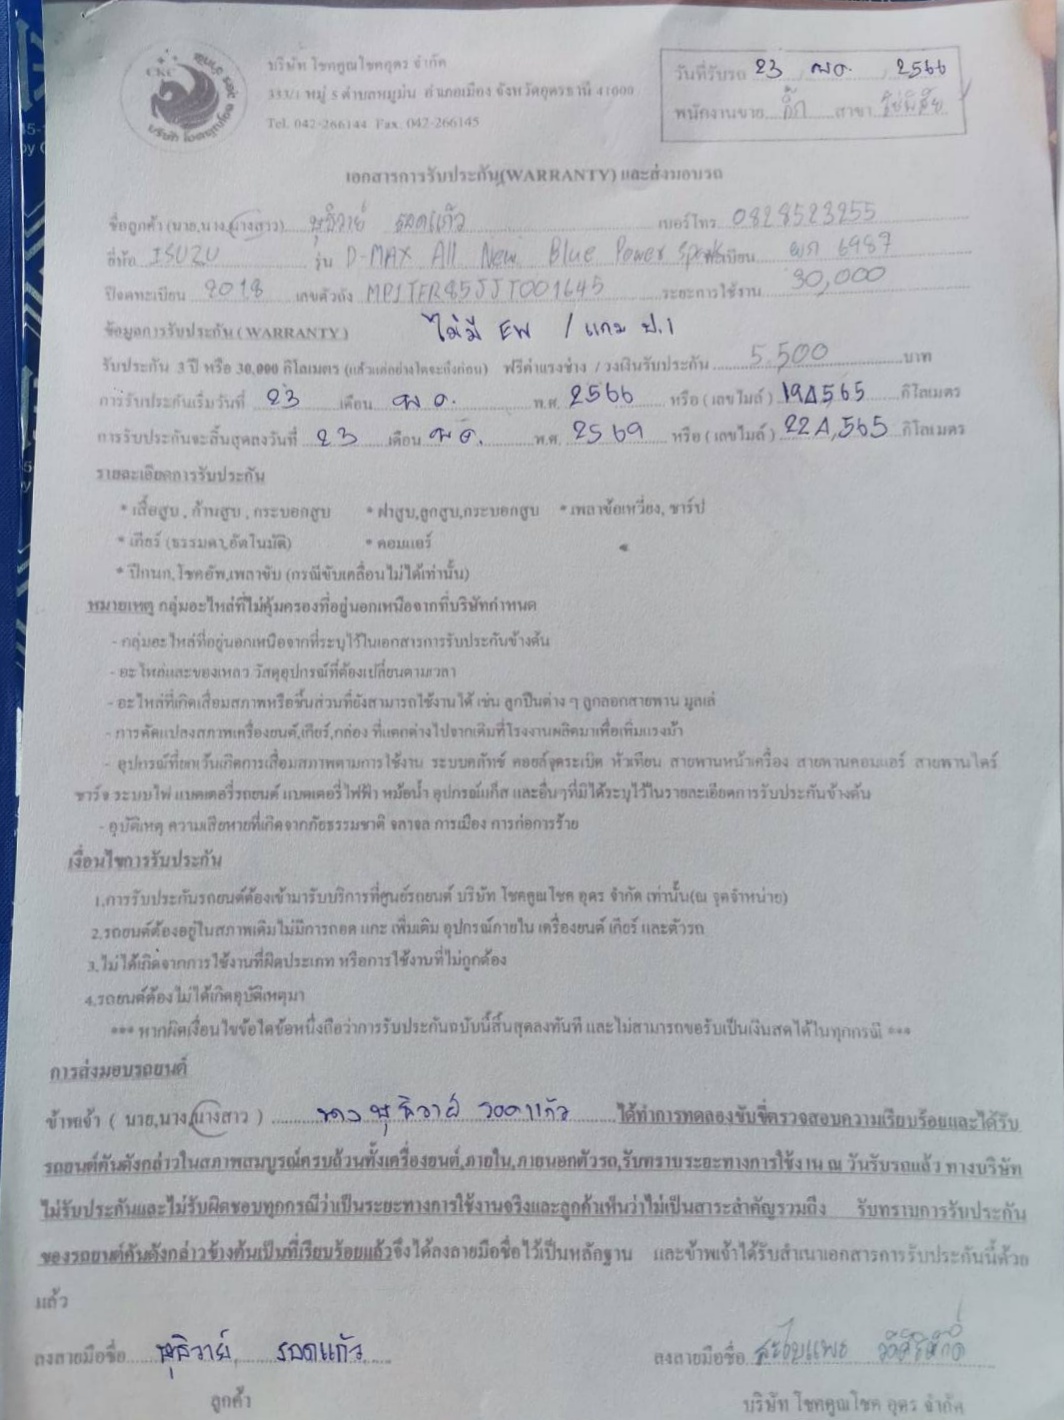 CKC
บริษัท โชคคูณโชคอุดร จำกัด
333/1 หมู่ 5 ตำบลหมูม่น อำเภอเมือง จังหวัดอุดรธานี 41000
Tel. 042-266144 Fax. 042-266145
วันที่รับรถ 23 / พ.ค. / 2566
พนักงานขาย กิ๊ก สาขา
เอกสารการรับประกัน(WARRANTY) และส่งมอบรถ
ชื่อลูกค้า (นาย,นาง,นางสาว) รอดแก้ว เบอร์โทร 0828523255
ยี่ห้อ ISUZU รุ่น D-MAX All New Blue Power ทะเบียน 6987
ปีจดทะเบียน 2018 เลขตัวถัง MP1TFR85JJT001645 ระยะการใช้งาน 30,000
ข้อมูลการรับประกัน ( WARRANTY ) ไม่มี EW / แถม ป.1
รับประกัน 3 ปี หรือ 30,000 กิโลเมตร (แล้วแต่อย่างใดจะถึงก่อน) ฟรีค่าแรงช่าง / วงเงินรับประกัน 5,500 บาท
การรับประกันเริ่มวันที่ 23 เดือน พ.ค. พ.ศ. 2566 หรือ ( เลขไมล์ ) 194565 กิโลเมตร
การรับประกันจะสิ้นสุดลงวันที่ 23 เดือน พ.ค. พ.ศ. 2569 หรือ ( เลขไมล์ ) 224,565 กิโลเมตร
รายละเอียดการรับประกัน
* เสื้อสูบ , ก้านสูบ , กระบอกสูบ * ฝาสูบ,ลูกสูบ,กระบอกสูบ * เพลาข้อเหวี่ยง, ชาร์ป
* เกียร์ (ธรรมดา,อัตโนมัติ) * คอมแอร์
* ปีกนก, โชคอัพ,เพลาขับ (กรณีขับเคลื่อนไม่ได้เท่านั้น)
หมายเหตุ กลุ่มอะไหล่ที่ไม่คุ้มครองที่อยู่นอกเหนือจากที่บริษัทกำหนด
- กลุ่มอะไหล่ที่อยู่นอกเหนือจากที่ระบุไว้ในเอกสารการรับประกันข้างต้น
- อะไหล่และของเหลว วัสดุอุปกรณ์ที่ต้องเปลี่ยนตามเวลา
- อะไหล่ที่เกิดเสื่อมสภาพหรือชิ้นส่วนที่ยังสามารถใช้งานได้ เช่น ลูกปืนต่าง ๆ ลูกลอกสายพาน มูลเล่
- การดัดแปลงสภาพเครื่องยนต์,เกียร์,กล่อง ที่แตกต่างไปจากเดิมที่โรงงานผลิตมาเพื่อเพิ่มแรงม้า
- อุปกรณ์ที่ยกเว้นเกิดการเสื่อมสภาพตามการใช้งาน ระบบคลัทช์ คอยล์จุดระเบิด หัวเทียน สายพานหน้าเครื่อง สายพานคอมแอร์ สายพานไดร์
ชาร์จ ระบบไฟ แบตเตอรี่รถยนต์ แบตเตอรี่ไฟฟ้า หม้อน้ำ อุปกรณ์แก็ส และอื่นๆที่มิได้ระบุไว้ในรายละเอียดการรับประกันข้างต้น
- อุบัติเหตุ ความเสียหายที่เกิดจากภัยธรรมชาติ จลาจล การเมือง การก่อการร้าย
เงื่อนไขการรับประกัน
1.การรับประกันรถยนต์ต้องเข้ามารับบริการที่ศูนย์รถยนต์ บริษัท โชคคูณโชค อุดร จำกัด เท่านั้น(ณ จุดจำหน่าย)
2.รถยนต์ต้องอยู่ในสภาพเดิมไม่มีการถอด แกะ เพิ่มเติม อุปกรณ์ภายใน เครื่องยนต์ เกียร์ และตัวรถ
3.ไม่ได้เกิดจากการใช้งานที่ผิดประเภท หรือการใช้งานที่ไม่ถูกต้อง
4.รถยนต์ต้องไม่ได้เกิดอุบัติเหตุมา
*** หากผิดเงื่อนไขข้อใดข้อหนึ่งถือว่าการรับประกันฉบับนี้สิ้นสุดลงทันที และไม่สามารถขอรับเป็นเงินสดได้ในทุกกรณี ***
การส่งมอบรถยนต์
ข้าพเจ้า ( นาย,นาง,นางสาว ) รอดแก้ว ได้ทำการทดลองขับขี่ตรวจสอบความเรียบร้อยและได้รับ
รถยนต์คันดังกล่าวในสภาพสมบูรณ์ครบถ้วนทั้งเครื่องยนต์,ภายใน,ภายนอกตัวรถ,รับทราบระยะทางการใช้งาน ณ วันรับรถแล้ว ทางบริษัท
ไม่รับประกันและไม่รับผิดชอบทุกกรณีว่าเป็นระยะทางการใช้งานจริงและลูกค้าเห็นว่าไม่เป็นสาระสำคัญรวมถึง รับทราบการรับประกัน
ของรถยนต์คันดังกล่าวข้างต้นเป็นที่เรียบร้อยแล้วจึงได้ลงลายมือชื่อไว้เป็นหลักฐาน และข้าพเจ้าได้รับสำเนาเอกสารการรับประกันนี้ด้วย
แล้ว
ลงลายมือชื่อ รอดแก้ว ลงลายมือชื่อ
ลูกค้า บริษัท โชคคูณโชค อุดร จำกัด